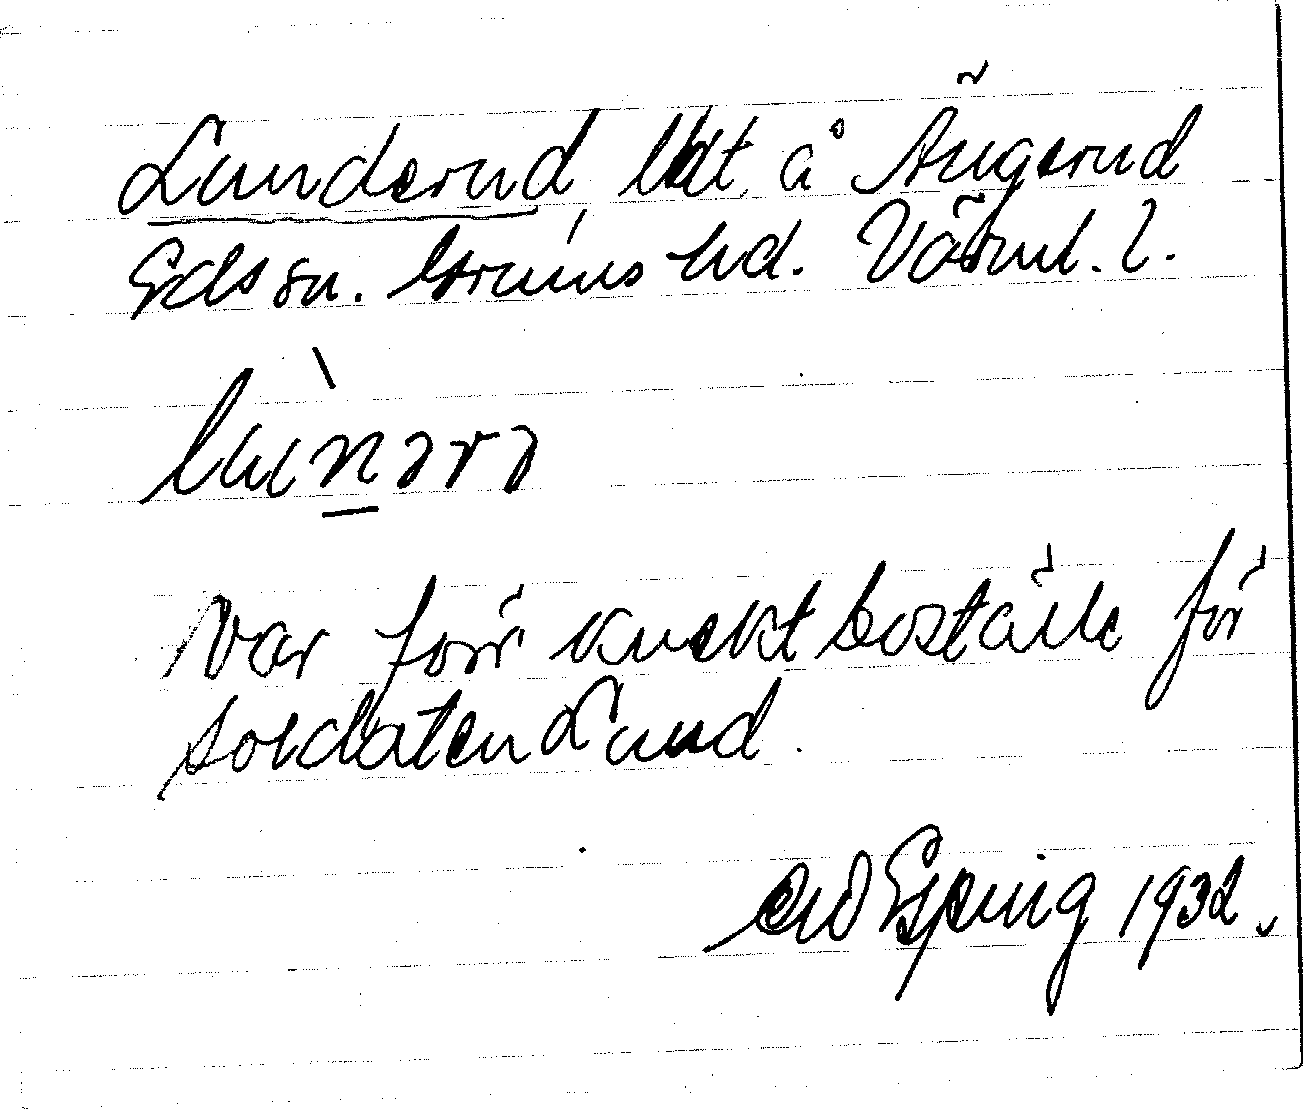 Lunderud lht å Ängerud
Eds sn. Grums hd. Värml. l.
Var förr knektboställe för
soldaten Lund.
Esping 1932.